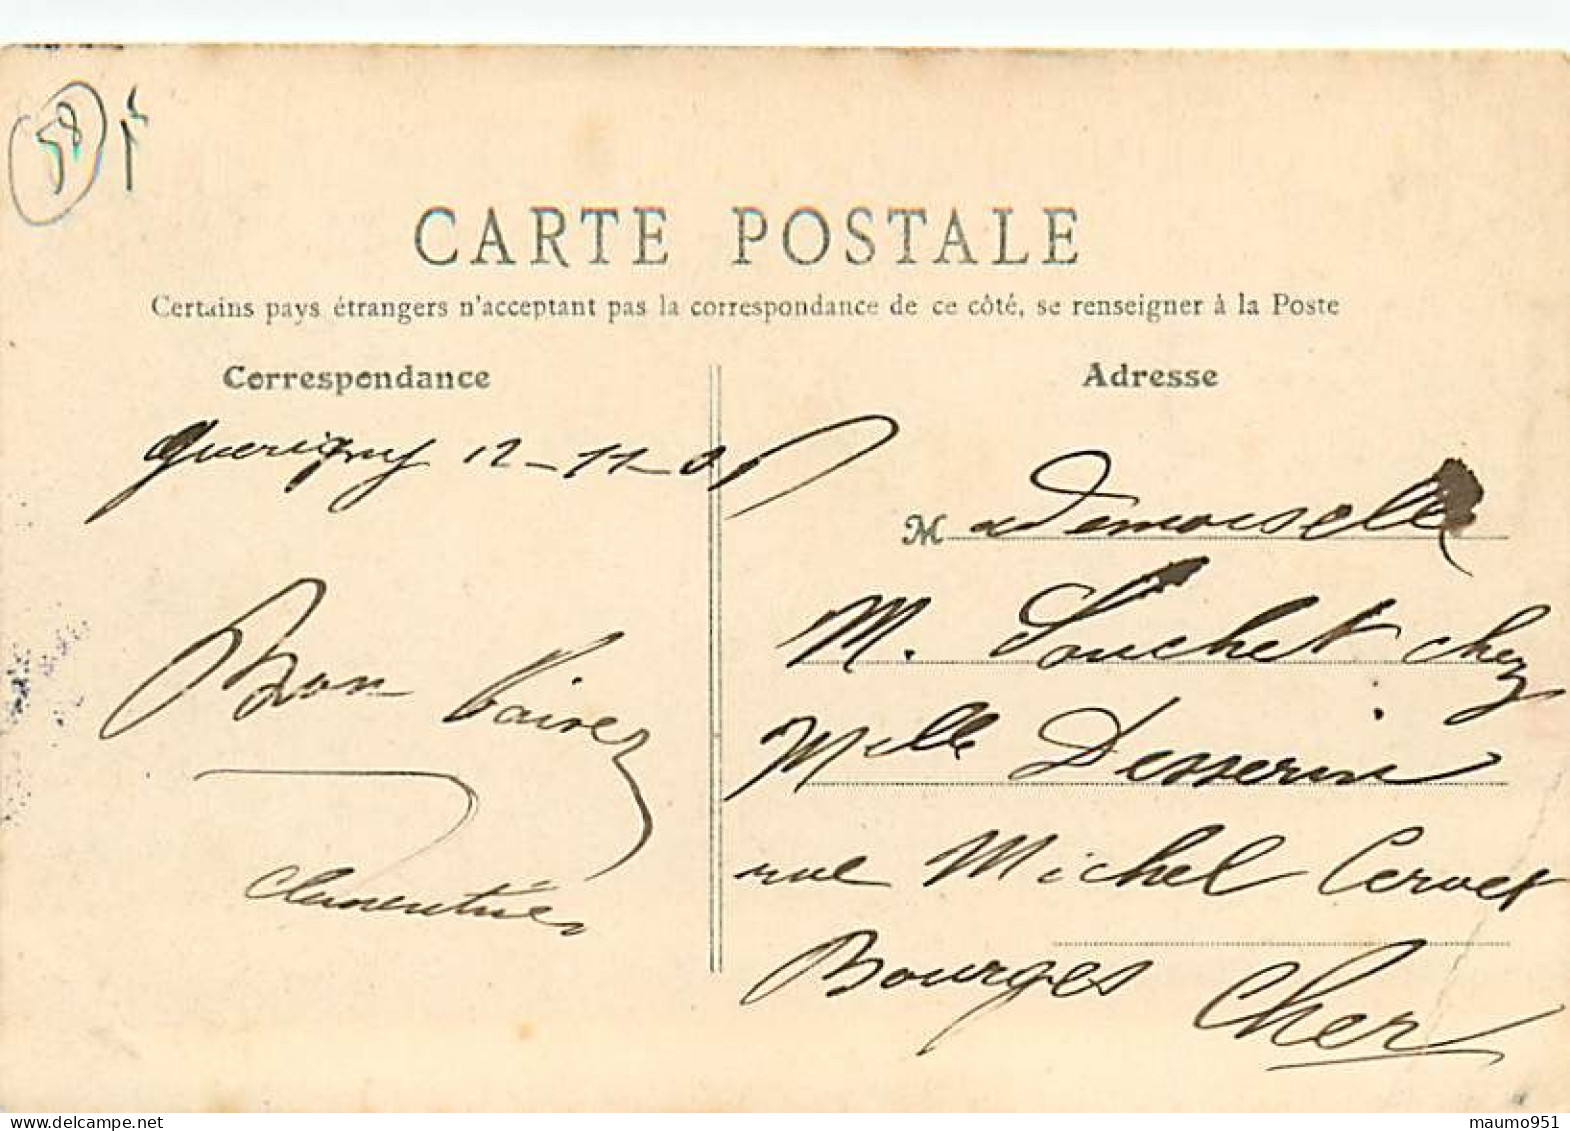 58
CARTE POSTALE
Certains pays étrangers n'acceptant pas la correspondance de ce côté, se renseigner à la Poste
Correspondance
Guerigny 12-11-05
Bon bairez
Clementine
Adresse
Mademoiselle
M. Souchet chez
Melle Desserin
rue Michel Cervet
Bourges
Cher
maumo951